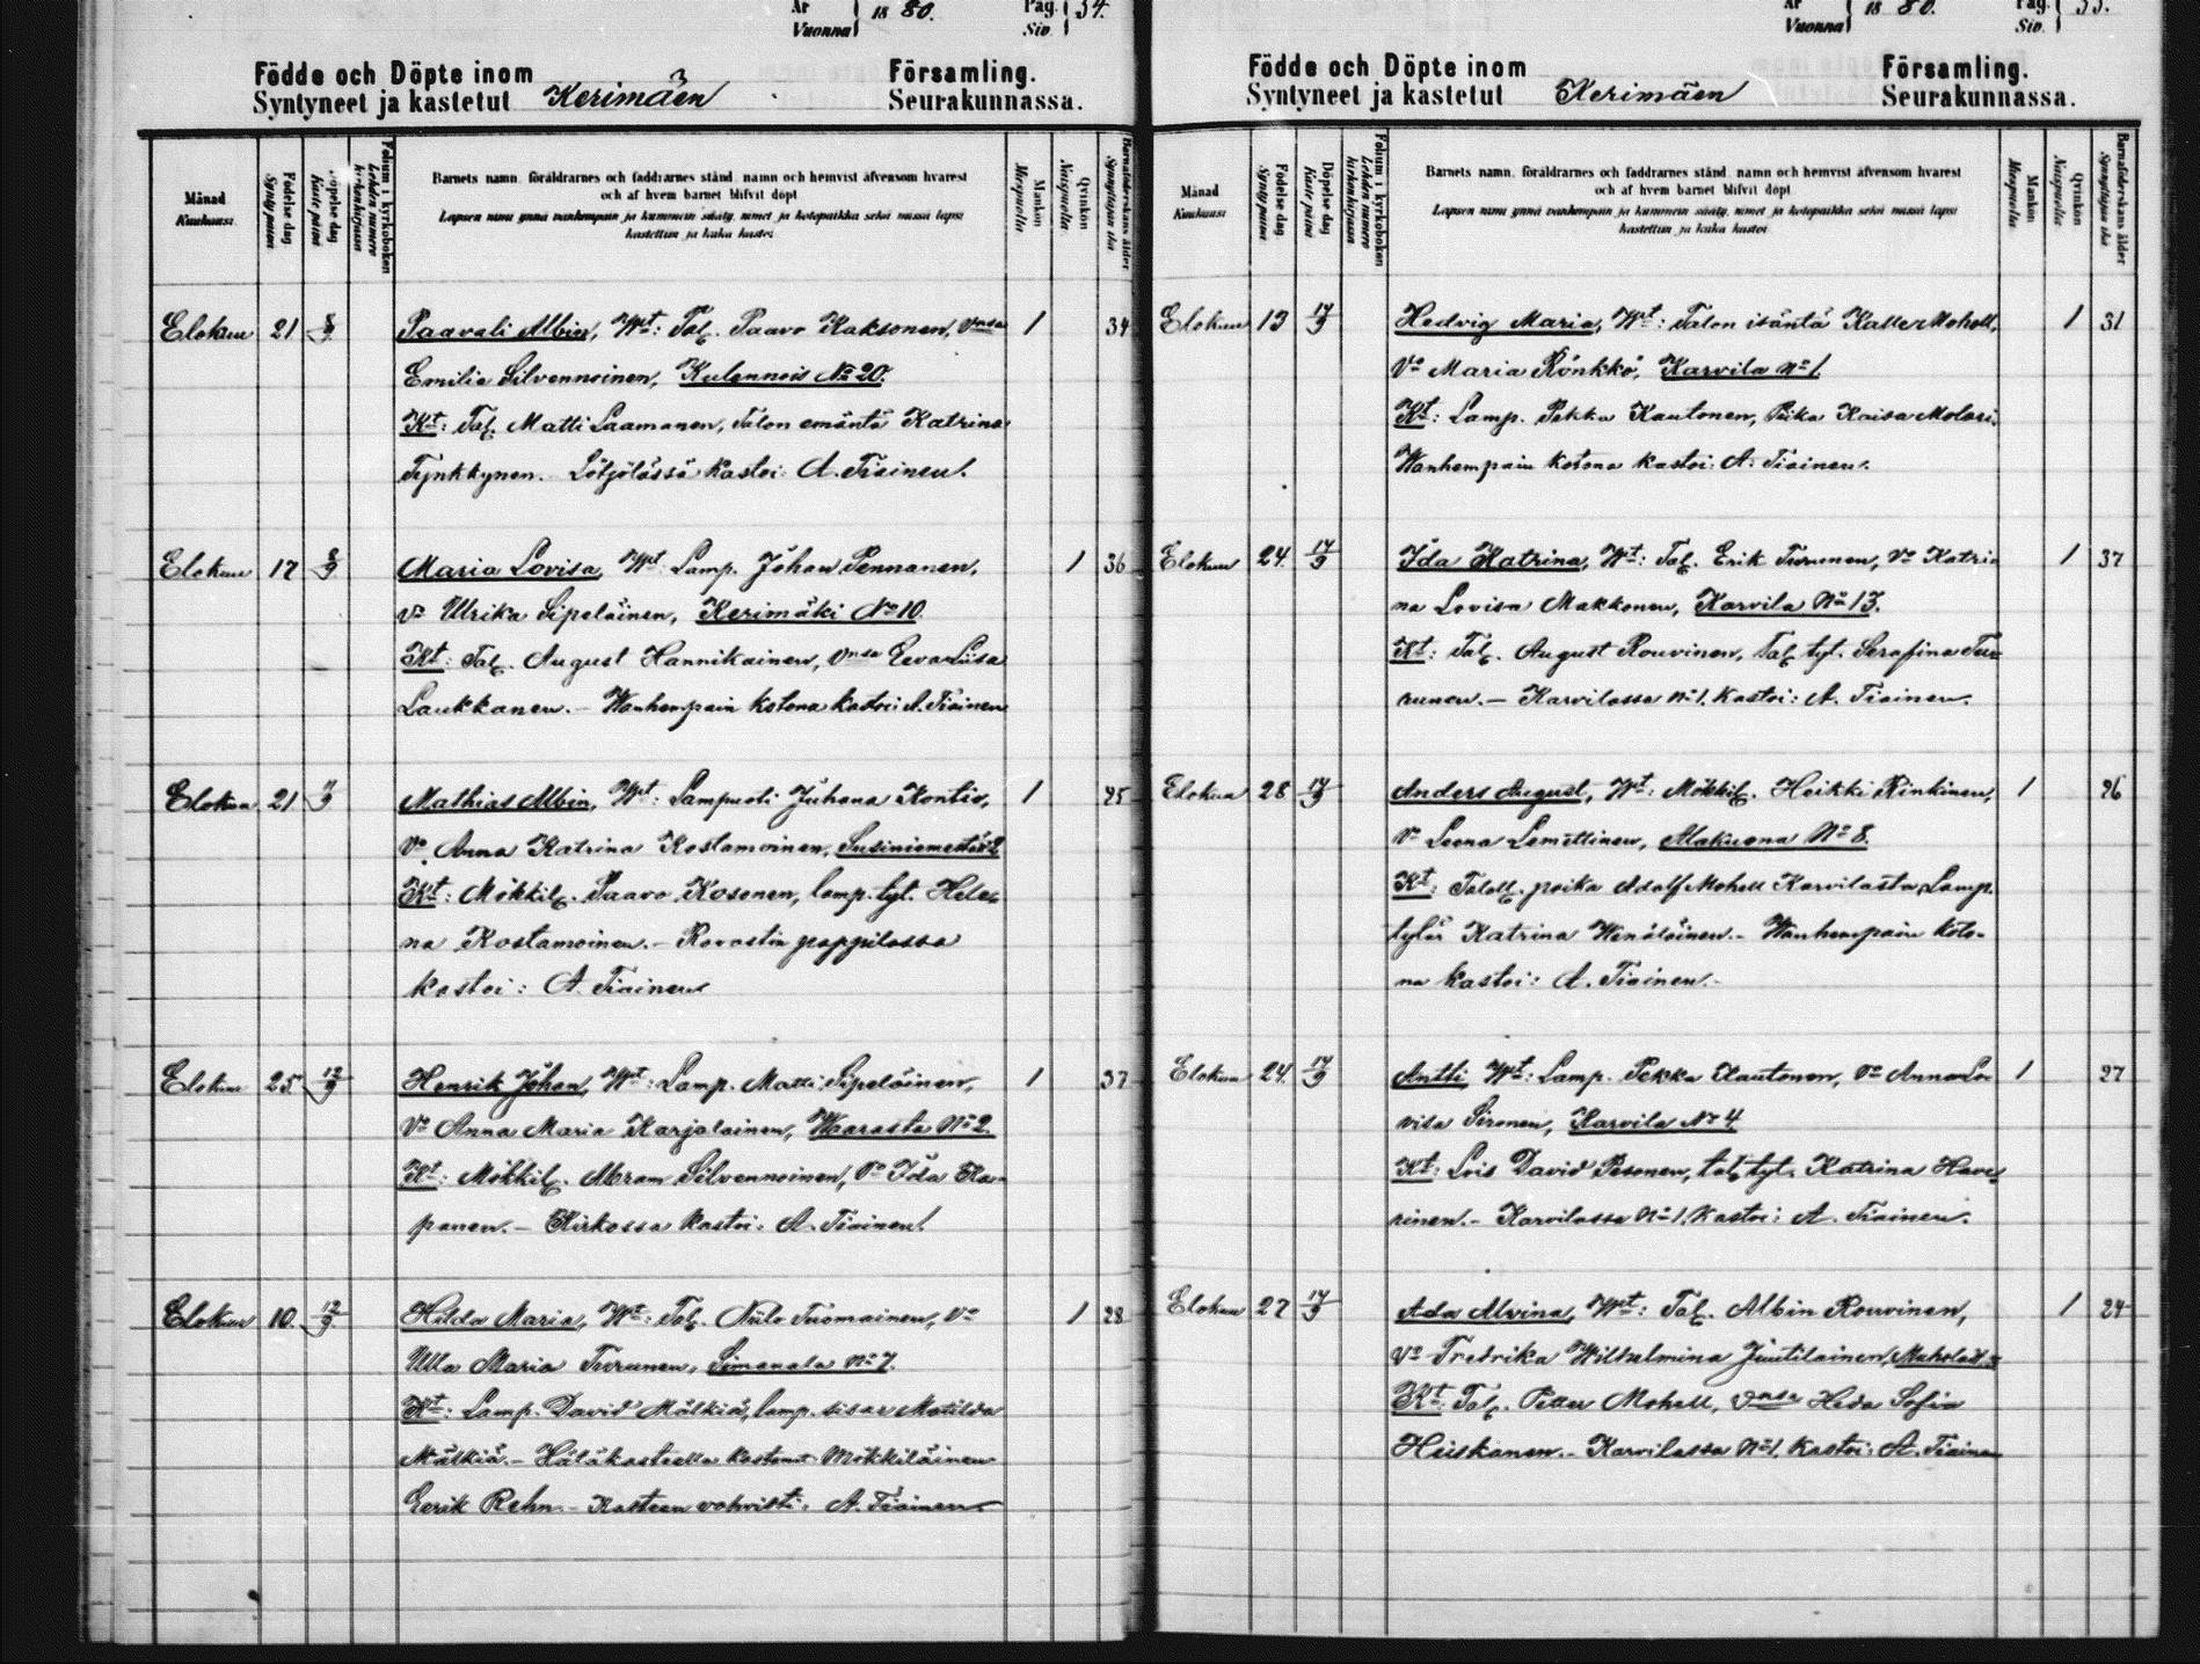 År 1880. Pag. 34.
Vuonna Siv.
Födde och Döpte inom Församling.
Syntyneet ja kastetut Kerimäen Seurakunnassa.
Månad
Kuukausi
Födelse dag
Synty päivä
Döpelse dag
Kaste päivä
Folium i kyrkoboken
Lehden numero kirkonkirjassa
Barnets namn, föräldrarnes och faddrarnes stånd, namn och hemvist äfvensom hvarest
och af hvem barnet blifvit döpt
Lapsen nimi ynnä vanhempain ja kummein sääty, nimet ja kotopaikka sekä missä lapsi
kastettiin ja kuka kastoi
Mankön
Miespuolta
Qvinkön
Naispuolta
Barnaföderskans ålder
Synnyttäjän ikä
Elokuu 21 8/9 Paavali Albin, Wmt: Tal. Paavo Kaksonen, Vnsa 1 34
Emilia Silvennoinen, Kulennois No 20.
Kt: Tal. Matti Laamanen, Talon emäntä Katrina
Tynkkynen. Lötjölässä kastoi: A. Tiainen.
Elokuu 17 8/9 Maria Lovisa, Wmt: Lamp. Johan Pennanen, 1 36
Vo Ulrika Sipeläinen, Kerimäki No 10.
Kt: Tal. August Hannikainen, Vnsa Eeva Liisa
Laukkanen. – Wanhempain kotona kastoi: A. Tiainen
Elokuu 21 11/9 Mathias Albin, Wmt: Lampuoti Juhana Kontio, 1 25
Vo Anna Katrina Kostamoinen, Susiniementie
Kt: Mökkil. Paavo Kosonen, lamp. tyt. Hele-
na Kostamoinen. – Rovastin pappilassa
kastoi: A. Tiainen
Elokuu 25 12/9 Henrik Johan, Wmt: Lamp. Matti Sipeläinen, 1 37
Vo Anna Maria Karjalainen, Waarasta No 2.
Kt: Mökkil. Abram Silvennoinen, Vo Ida Ka-
panen. – Kirkossa kastoi: A. Tiainen.
Elokuu 10. 12/9 Hilda Maria, Wmt: Tal. Niilo Tuomainen, Vo 1 28
Ulla Maria Turunen, Simanala No 7.
Kt: Lamp. David Mälkiä, lamp. sisar Matilda
Mälkiä. – Hätäkasteella kastanut Mökkiläinen
Eerik Rehn. – Kasteen vahvisti: A. Tiainen
År 1880. Pag. 35.
Vuonna Siv.
Födde och Döpte inom Församling.
Syntyneet ja kastetut Kerimäen Seurakunnassa.
Månad
Kuukausi
Födelse dag
Synty päivä
Döpelse dag
Kaste päivä
Folium i kyrkoboken
Lehden numero kirkonkirjassa
Barnets namn, föräldrarnes och faddrarnes stånd, namn och hemvist äfvensom hvarest
och af hvem barnet blifvit döpt
Lapsen nimi ynnä vanhempain ja kummein sääty, nimet ja kotopaikka sekä missä lapsi
kastettiin ja kuka kastoi
Mankön
Miespuolta
Qvinkön
Naispuolta
Barnaföderskans ålder
Synnyttäjän ikä
Elokuu 19 17/9 Hedvig Maria, Wmt: Talon isäntä Kalle Mohell, 1 31
Vo Maria Rönkkö, Karvila No 1.
Kt: Lamp. Pekka Kautonen, Piika Kaisa Molari.
Wanhempain kotona kastoi: A. Tiainen.
Elokuu 24. 17/9 Ida Katrina, Wmt: Tal. Erik Turunen, Vo Katri- 1 37
na Lovisa Makkonen, Karvila No 13.
Kt: Tal. August Rouvinen, Tal. tyt. Serafina Tu-
runen. – Karvilassa No 1. kastoi: A. Tiainen.
Elokuu 28 17/9 Anders August, Wmt: Mökkil. Heikki Rinkinen, 1 26
Vo Leena Lemettinen, Makuona No 8.
Kt: Taloll. poika Adolf Mohell Karvilasta, Lamp.
tytär Katrina Wenäläinen. – Wanhempain koto-
na kastoi: A. Tiainen.
Elokuu 24. 17/9 Antti, Wmt: Lamp. Pekka Kautonen, Vo Anna Lo- 1 27
visa Sironen, Karvila No 4.
Kt: Lois David Pesonen, tal. tyt. Katrina Have-
rinen. – Karvilassa No 1. kastoi: A. Tiainen.
Elokuu 27 17/9 Ada Alvina, Wmt: Tal. Albin Rouvinen, 1 24
Vo Fredrika Wilhelmina Juutilainen,
Kt: Tal. Petter Mohell, Vnsa Heda Sofia
Hiiskanen. – Karvilassa No 1. kastoi: A. Tiainen